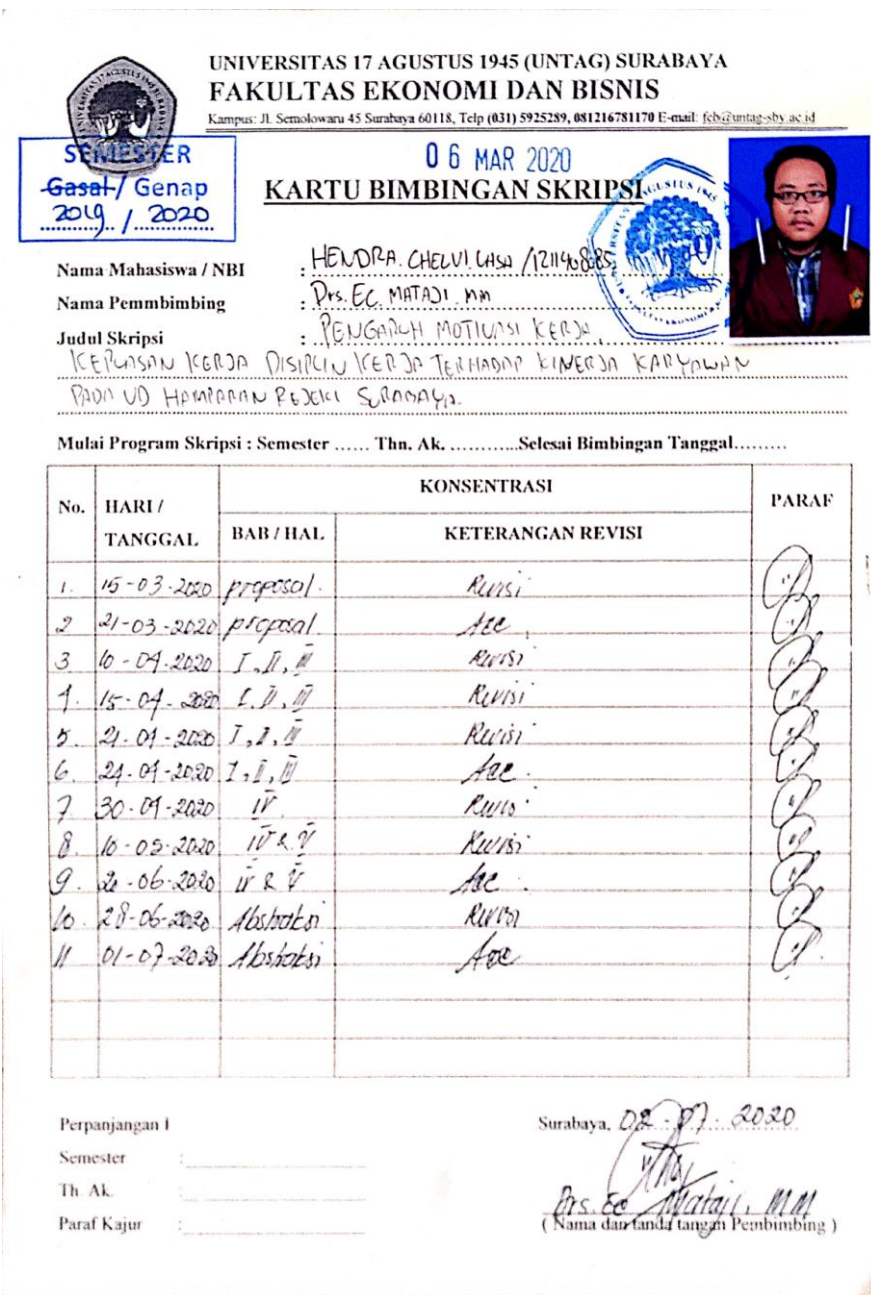 UNIVERSITAS 17 AGUSTUS 1945 (UNTAG) SURABAYA
FAKULTAS EKONOMI DAN BISNIS
Kampus: Jl. Semolowaru 45 Surabaya 60118, Telp (031) 5925289, 081216781170 E-mail: feb@untag-sby.ac.id
SEMESTER
Gasal / Genap
2019 / 2020
06 MAR 2020
KARTU BIMBINGAN SKRIPSI
Nama Mahasiswa / NBI : HENDRA. CHELVI
Nama Pemmbimbing : Drs. EC. MATAJI. MM
Judul Skripsi : PENGARUH MOTIVASI KERJA,
KEPUASAN KERJA DISIPLIN KERJA TERHADAP KINERJA KARYAWAN
PADA UD HAMPARAN REJEKI SURABAYA.
Mulai Program Skripsi : Semester ...... Thn. Ak. ............Selesai Bimbingan Tanggal.........
No. HARI / TANGGAL KONSENTRASI PARAF
BAB / HAL KETERANGAN REVISI
1. 15-03-2020 proposal. Revisi
2 21-03-2020 proposal. Acc
3. 10-04-2020 I, II, III Revisi
4. 15-04-2020 I, II, III Revisi
5. 21-04-2020 I, II, III Revisi
6. 24-04-2020 I, II, III Acc.
7. 30-04-2020 IV Revisi
8. IV & V Revisi
9. IV & V Acc.
10. 28-06-2020 Abstraksi Revisi
11 01-07-2020 Abstraksi Acc
Perpanjangan I
Semester :
Th. Ak. :
Paraf Kajur :
Surabaya, 02-07-2020
Drs. Ec Mataji, MM
( Nama dan tanda tangan Pembimbing )